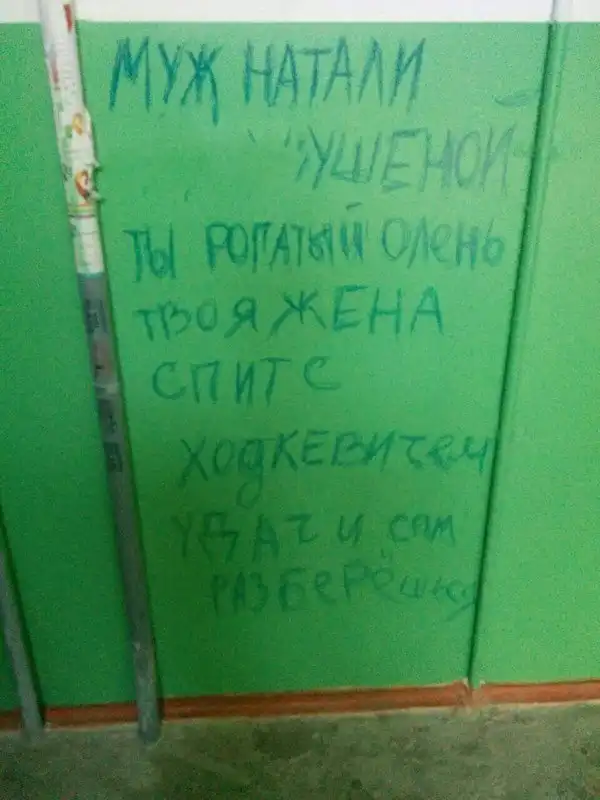 МУЖ НАТАЛИ
ТЫ РОГАТЫЙ ОЛЕНЬ
ТВОЯ ЖЕНА
СПИТ С
ХОДКЕВИЧем
УДАЧИ САМ
РАЗБеРЁШЬСЯ